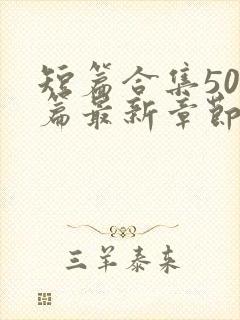 短篇合集50
篇最新章节
三羊泰来